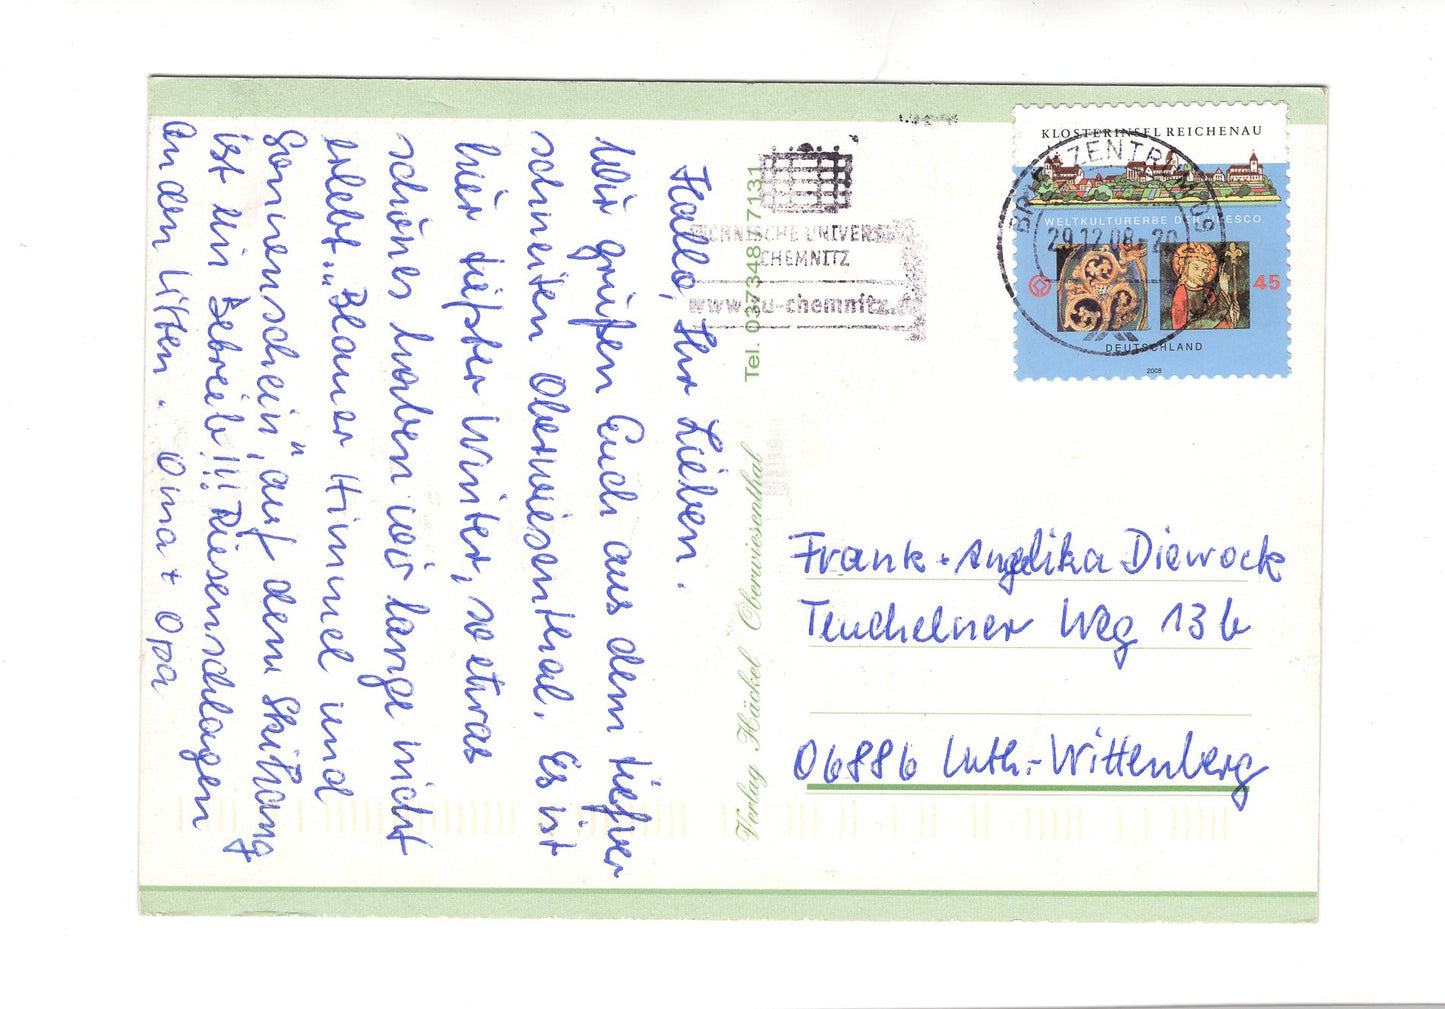 Hallo, Ihr Lieben.
Wir grüßen Euch aus dem tiefver
schneiten Oberwiesenthal. Es ist
hier tiefster Winter, so etwas
schönes haben wir lange nicht
erlebt. „Blauer Himmel und
Sonnenschein", auf dem Skihang
ist ein Betreib!!! Riesenschlagen
an den Liften. Oma + Opa
Verlag Häckel Oberwiesenthal
Tel. 037348/7131
TECHNISCHE UNIVERSI
CHEMNITZ
www.tu-chemnitz.de
KLOSTERINSEL REICHENAU
BRIEFZENTRUM 09
29.12.08-20
WELTKULTURERBE DER UNESCO
45
DEUTSCHLAND
2008
Frank + Angelika Diewock
Teuchelner Weg 13b
06886 Luth.-Wittenberg